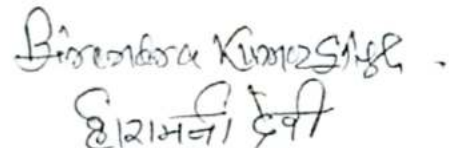 Birendra Kumar Singh .
हीरामनी देवी